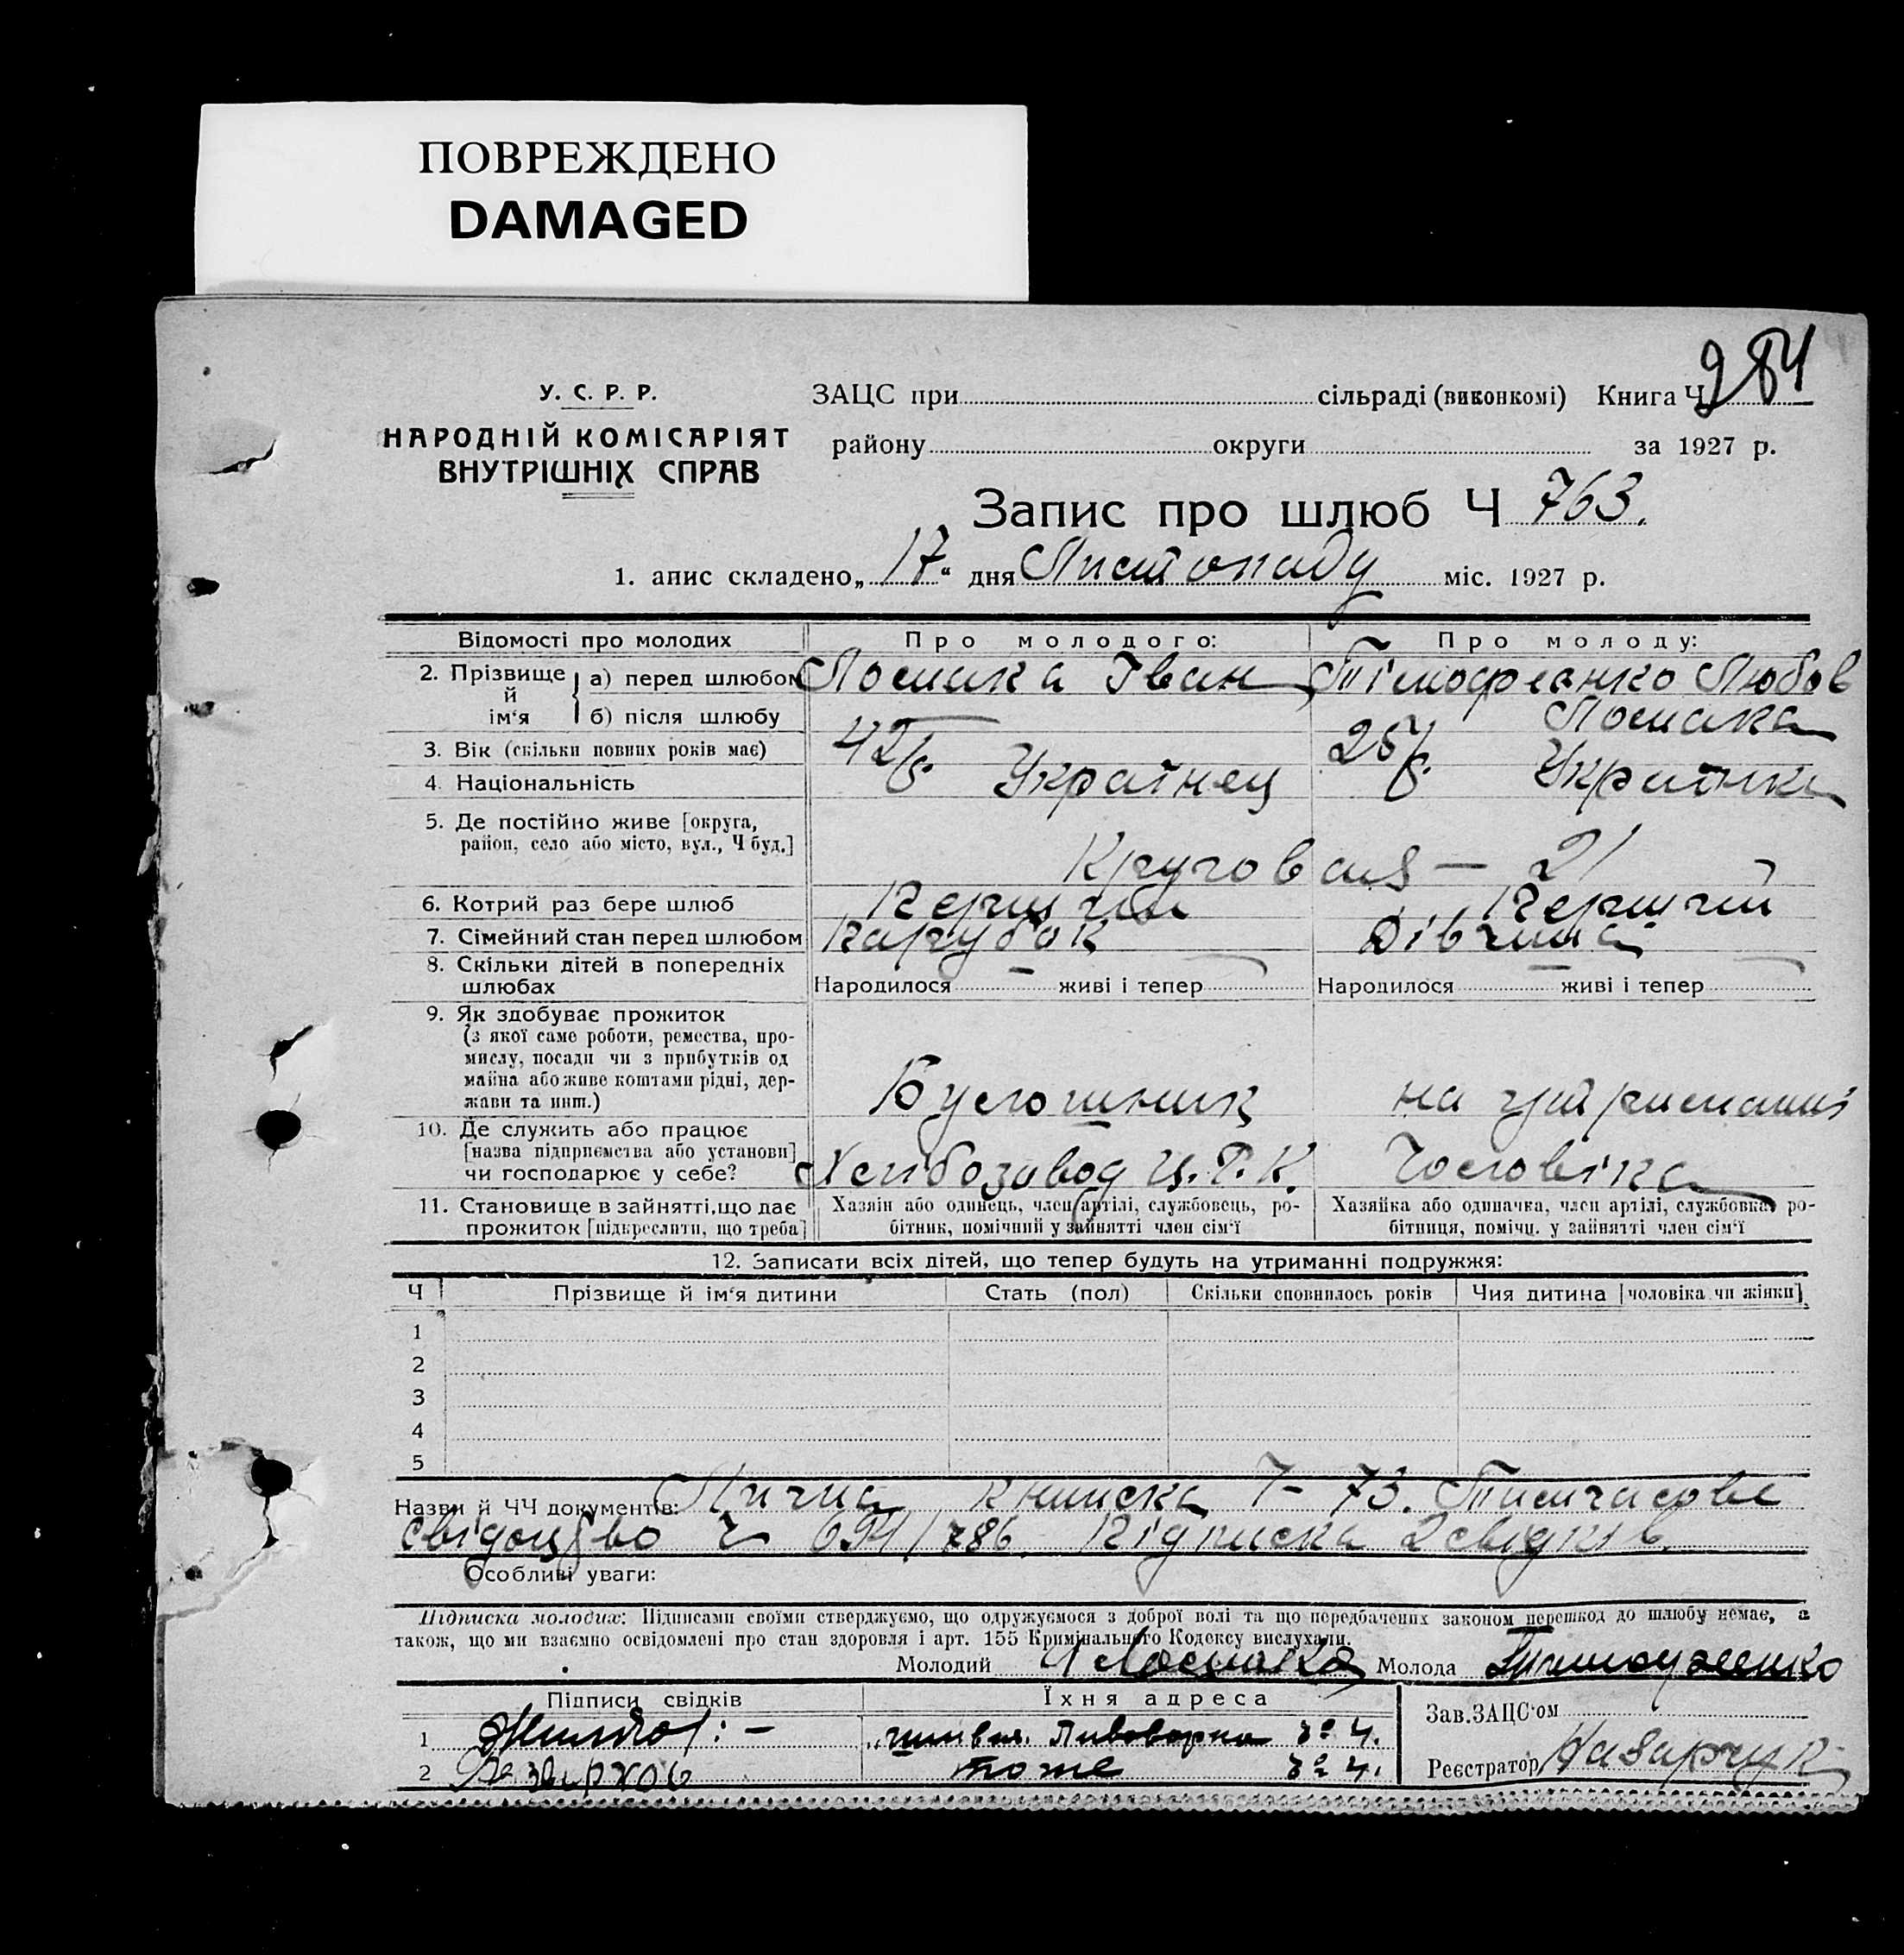 ПОВРЕЖДЕНО
DAMAGED
284
У. С. Р. Р.
НАРОДНІЙ КОМІСАРІЯТ
ВНУТРІШНІХ СПРАВ
ЗАЦС при сільраді (виконкомі) Книга Ч
району округи за 1927 р.
Запис про шлюб Ч 763.
1. апис складено „17“ дня Листопаду міс. 1927 р.
Відомості про молодих Про молодого: Про молоду:
2. Прізвище й ім‘я а) перед шлюбом Ломака Іван Тімофеенко Любов
б) після шлюбу Ломака
3. Вік (скільки повних років має) 42 25
4. Національність Украінец Украінка
5. Де постійно живе [округа,
район, село або місто, вул., Ч буд.] Круговая — 21
6. Котрий раз бере шлюб Перший Перший
7. Сімейний стан перед шлюбом Парубок Дівчина
8. Скільки дітей в попередніх
шлюбах Народилося — живі і тепер — Народилося — живі і тепер —
9. Як здобуває прожиток
(з якої саме роботи, ремества, про-
мислу, посади чи з прибутків од
майна або живе коштами рідні, дер-
жави та инш.) на утриманні
10. Де служить або працює
[назва підприємства або установи]
чи господарює у себе? Хлібозавод Ц.Р.К. Чоловіка
11. Становище в зайнятті, що дає
прожиток [підкреслити, що треба]
Хазяїн або одинець, член артілі, службовець, ро-
бітник, помічний у зайнятті член сім‘ї
Хазяйка або одиначка, член артілі, службовка, ро-
бітниця, помічн. у зайнятті член сім‘ї
12. Записати всіх дітей, що тепер будуть на утриманні подружжя:
Ч Прізвище й ім‘я дитини Стать (пол) Скільки сповнилось років Чия дитина [чоловіка чи жінки]
1
2
3
4
5
Назви й ЧЧ документів: Лична книжка 7-73. Тимчасове
свідоцтво Ч 694/786. Підписка 2 свідків.
Особливі уваги:
Підписка молодих: Підписами своїми стверджуємо, що одружуємося з доброї волі та що передбачених законом перешкод до шлюбу немає, а
також, що ми взаємно освідомлені про стан здоровля і арт. 155 Кримінального Кодексу вислухали.
Молодий Ломака Молода Тимофеенко
Підписи свідків Їхня адреса Зав. ЗАЦС‘ом
1 Пивоварна № 4.
2 тоже № 4.
Реєстратор Назарчук